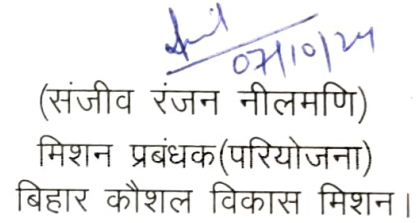 07/10/24
(संजीव रंजन नीलमणि)
मिशन प्रबंधक(परियोजना)
बिहार कौशल विकास मिशन।